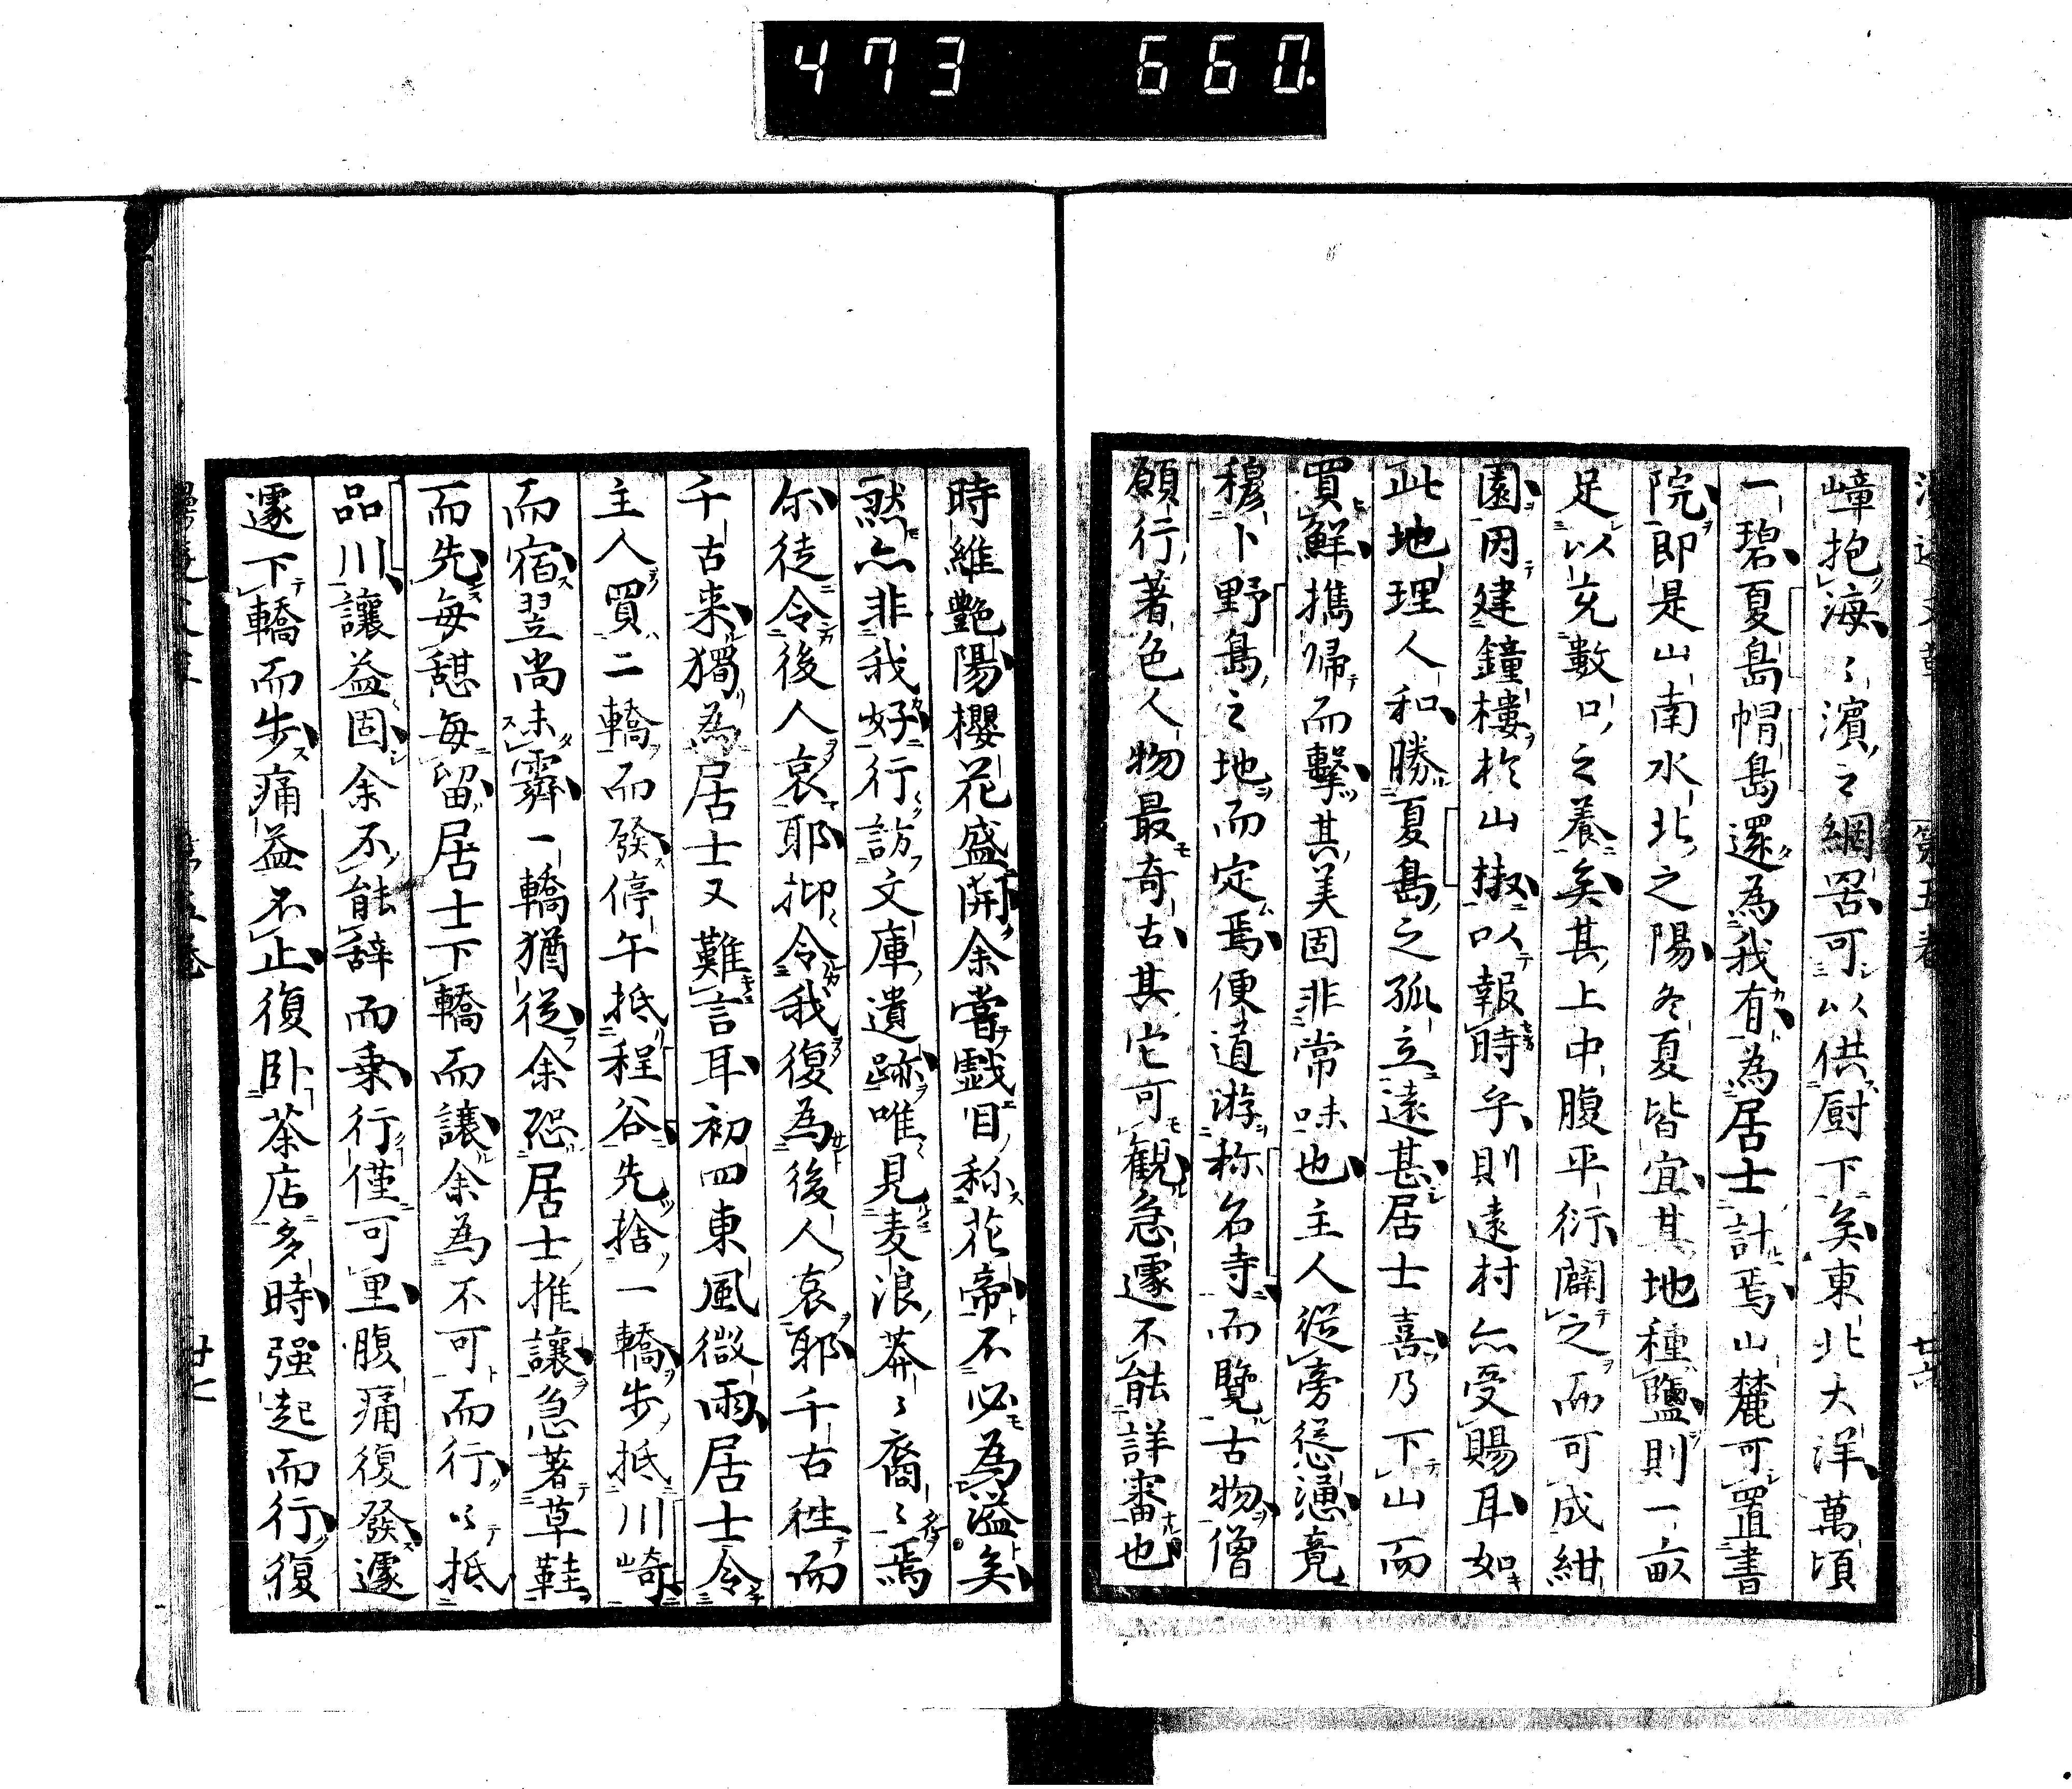 473 660.
嶂抱海〻濱之網罟可以供厨下矣東北大洋萬頃
一碧夏島帽島還為我有為居士計焉山麓可置書
院即是山南水北之陽冬夏皆宜其地種鹽則一畝
足以充數口之養矣其上中腹平衍闢之而可成紺
園因建鐘樓於山椒以報時乎則遠村亦受賜耳如
此地理人和勝夏島之孤立遠甚居士喜乃下山而
買鮮携帰而擊其美固非常味也主人從旁慫慂竟
穆卜野島之地而定焉便道游称名寺而覽古物僧
願行著色人物最奇古其它可觀急遽不能詳審也
時維艶陽櫻花盛開余嘗戲目称花帝不必為溢矣
然亦非我好行訪文庫遺跡唯見麦浪莽〻裔〻焉
尓徒令後人哀耶抑令我復為後人哀耶千古往而
千古来獨為居士又難言耳初四東風微雨居士令
主人買二轎而發停午抵程谷先捨一轎步抵川崎
而宿翌尚未霽一轎猶從余強居士推讓急著草鞋
而先每憩每留居士下轎而讓余為不可而行以抵
品川讓益固余不能辞而乗行僅可里腹痛復發遽
遽下轎而步痛益不止復卧茶店多時强起而行復